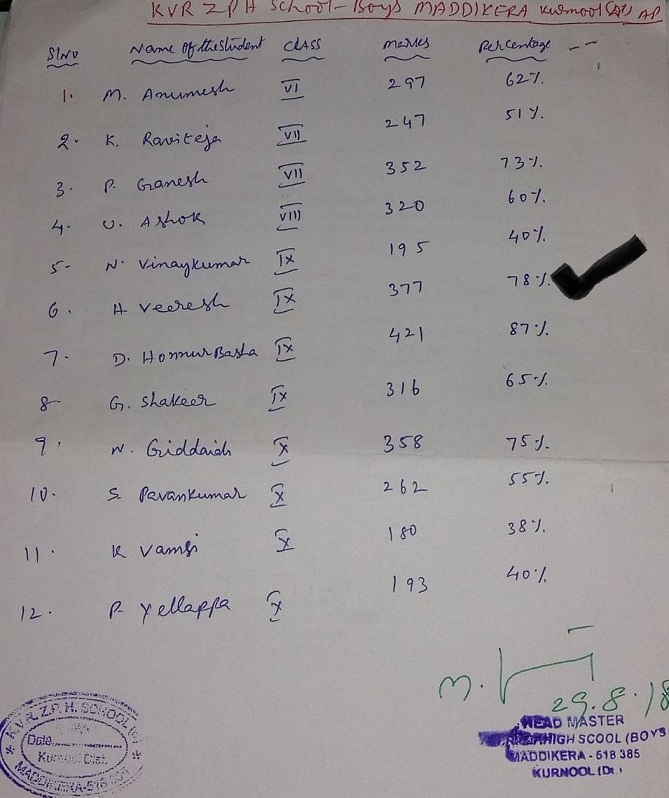 KVR ZPH School-Boys MADDIKERA Kurnool (dt) AP
Sl.No Name of the student CLASS marks Percentage
1. M. Anumesh VI 297 62%
2. K. Raviteja VII 247 51%
3. P. Ganesh VII 352 73%
4. U. Ashok VIII 320 60%
5- N. Vinaykumar IX 195 40%
6. H Veeresh IX 377 78%
7. D. HonnurBasha IX 421 87%
8- G. Shakeer IX 316 65%
9. N. Giddaiah X 358 75%
10. S Pavankumar X 262 55%
11. K Vamsi X 180 38%
12. P. Yellappa X 193 40%
M.
29.8.18
K.V.R. Z.P.H. SCHOOL
Date
Kurnool Dist.
MADDIKERA-518
HEAD MASTER
HIGH SCOOL (BOYS
MADDIKERA - 518 385
KURNOOL (Dt.)